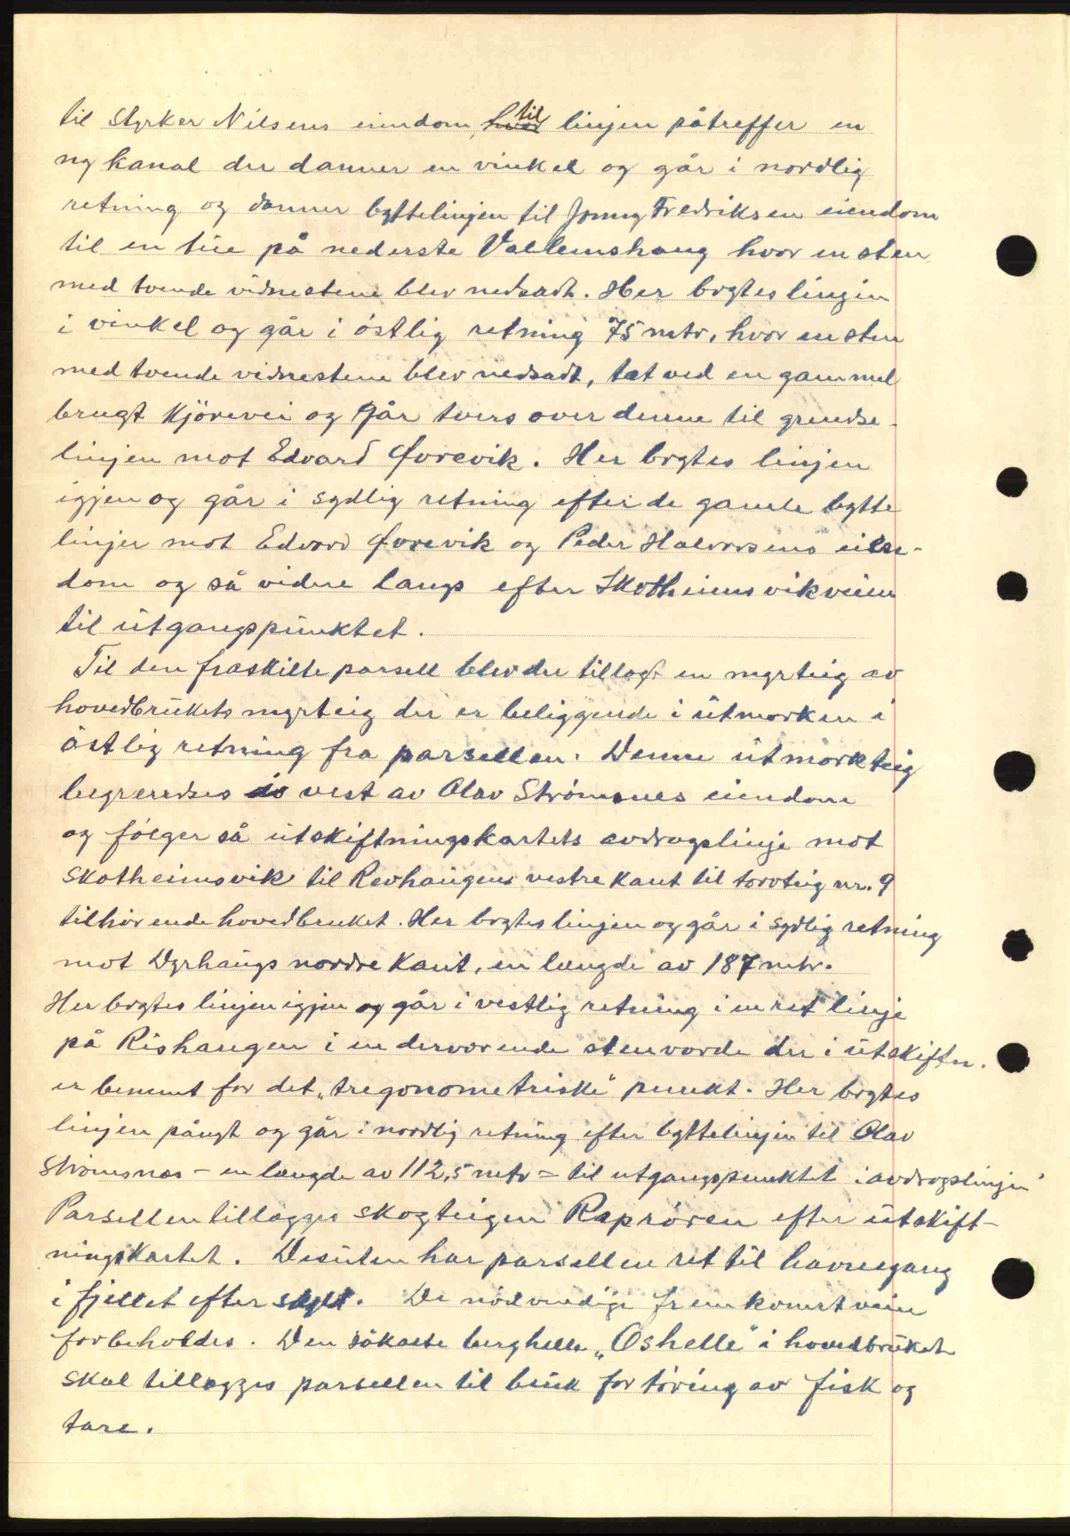 til Styrker Nilsens eiendom, til linjen påtreffer en
ny kanal der danner en vinkel og går i nordlig
retning og danner byttelinjen til Jonny Fredriksen eiendom
til en tue på nederste Vallemshaug hvor en sten
med tvende vidnestene blev nedsadt. Her brytes linjen
i vinkel og går i östlig retning 75 mtr, hvor en sten
med tvende vidnestene blev nedsadt, tæt ved en gammel
brugt Kjörevei og går tvers over denne til grendse-
linjen mot Edvard Forevik. Her brytes linjen
igjen og går i sydlig retning efter de gamle bytte
linjer mot Edvard Forevik og Peder Halvorsens eien-
dom og så videre langs efter Skotheimsvikveien
til utgangspunktet.
Til den fraskilte parsell blev der tillagt en myrteig av
hovedbrukets myrteig der er beliggende i utmarken i
östlig retning fra parsellen. Denne utmarkteig
begrendses i vest av Olav Strömsnes eiendom
og fölger så utskiftningskartets avdragslinje mot
Skotheimsvik til Revhaugens vestre kant til torvteig nr. 9
tilhörende hovedbruket. Her brytes linjen og går i sydlig retning
mot Dyrhaugs nordre Kant, en længde av 187 mtr.
Her brytes linjen igjen og går i vestlig retning i en ret linje
på Rishaugen i en derværende stenvarde der i utskiftn.
er benevnt for det „tregonometriske" punkt. Her brytes
linjen pånyt og går i nordlig retning efter byttelinjen til Olav
Strømsnæs – en længde av 112,5 mtr = til utgangspunktet i avdragslinjen
Parsellen tillægges skogteigen Raprören efter utskift-
ningskartet. Desuten har parsellen ret til havnegang
i fjellet efter skyld. De nödvendige fremkomstveie
forbeholdes. Den såkalte berghelle „Oshelle" i hovedbruket
skal tillægges parsellen til bruk for töring av fisk og
tare.